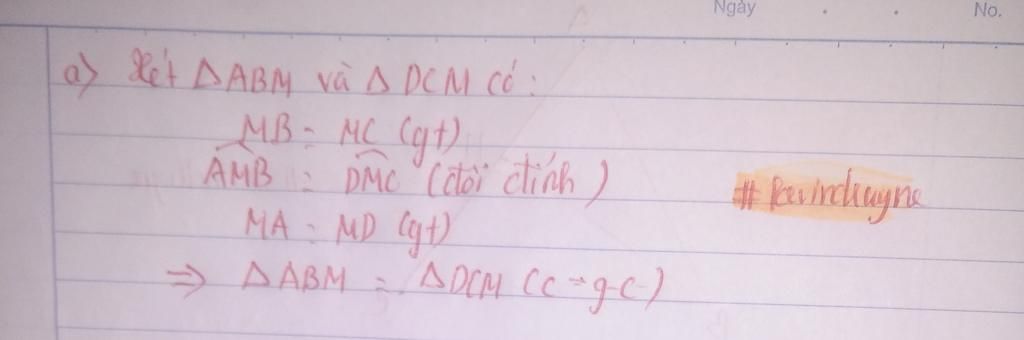 Ngày No.
a) Xét △ABM và △DCM có:
MB = MC (gt)
AMB = DMC (đối đỉnh)
MA = MD (gt)
⇒ △ABM = △DCM (c-g-c)